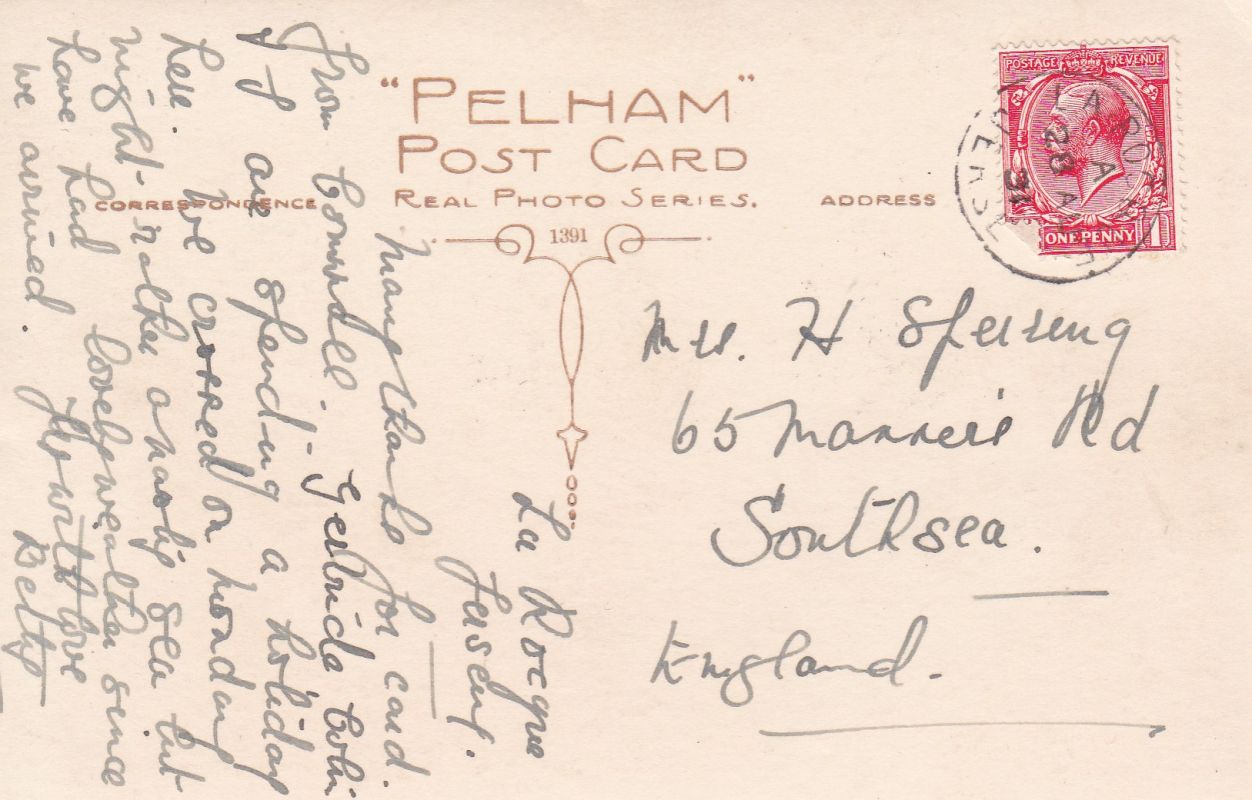 "PELHAM"
POST CARD
REAL PHOTO SERIES.
CORRESPONDENCE
ADDRESS
1391
POSTAGE REVENUE
ONE PENNY 1
JERSEY
La Rocque
Jersey.
Many thanks for card.
from Cornwall - Colin
& I are spending a holiday
here. We crossed on Monday
night - rather a nasty sea but
have had lovely weather since
we arrived.
with love
Betty
Mrs. H Spering
65 Manners Rd
Southsea.
England.